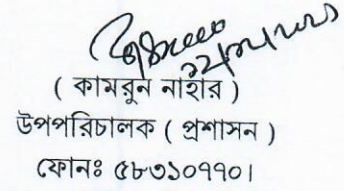 ( কামরুন নাহার )
উপপরিচালক ( প্রশাসন )
ফোনঃ ৫৮৩১০৭৭০।